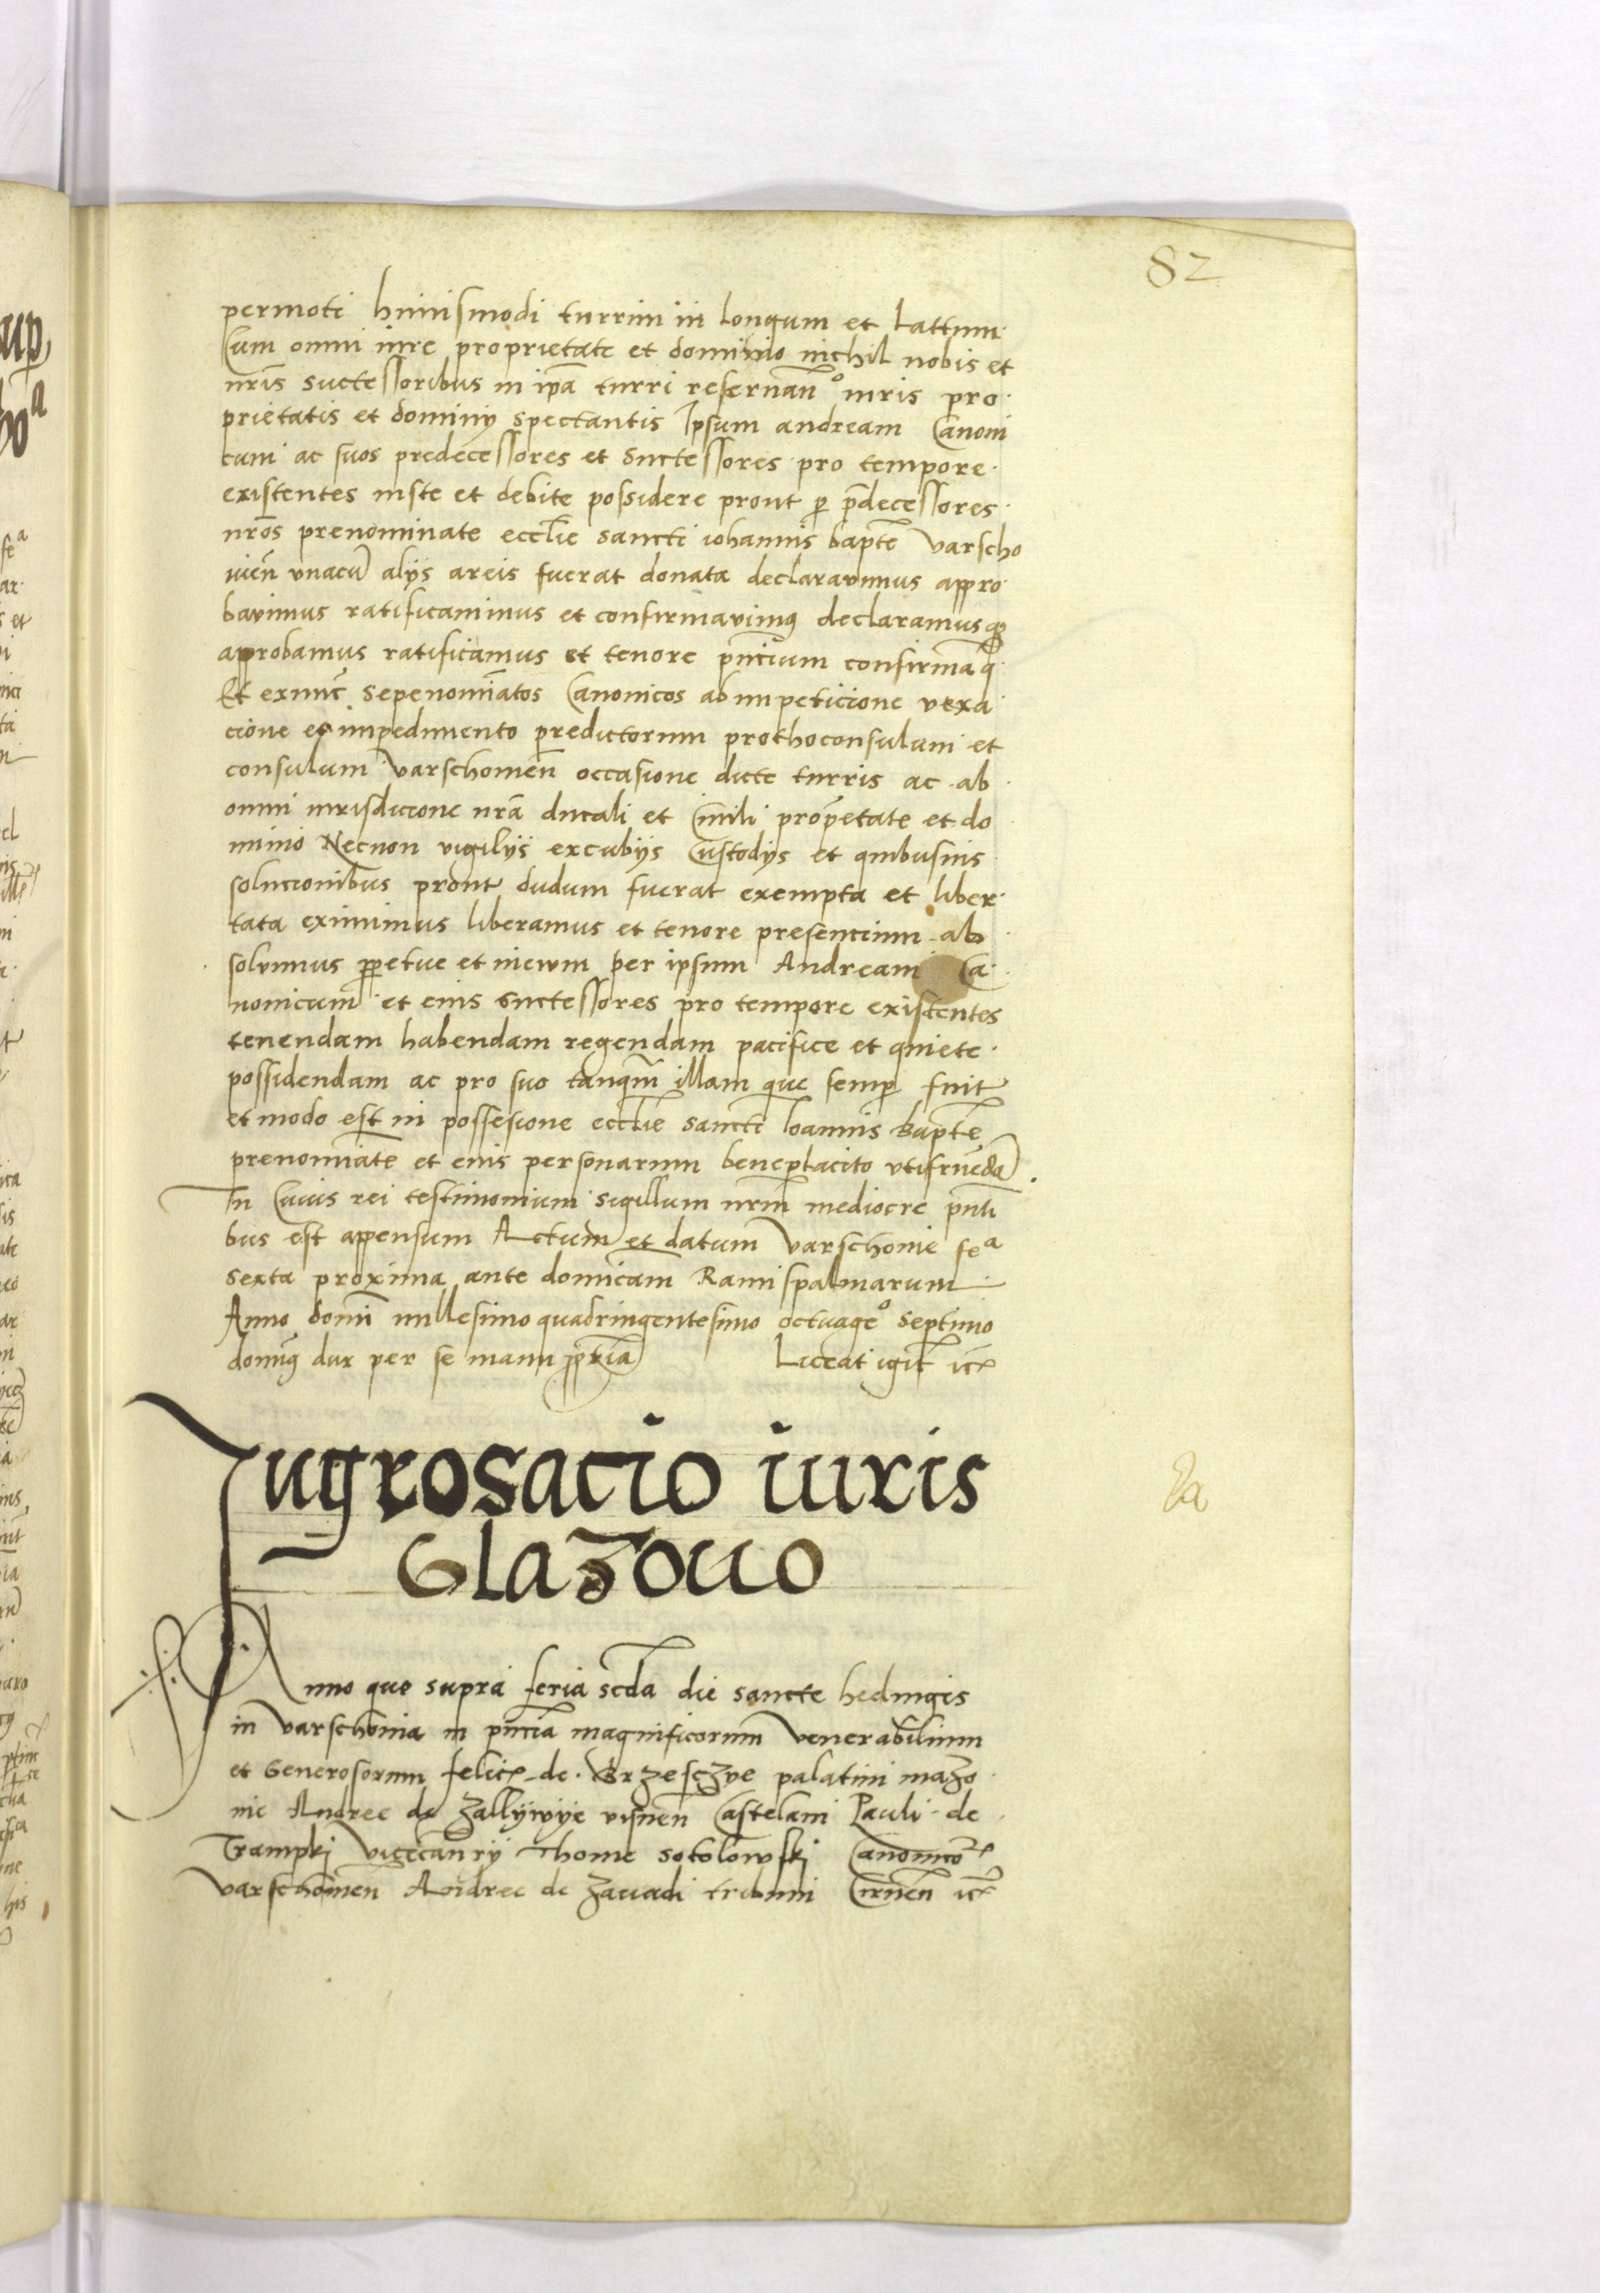 82
permoti huiusmodi turrim in longum et lattum
Cum omni iure proprietate et dominio nichil nobis et
nris successoribus in ipa turri reseruan° iuris pro
prietatis et dominy spectantis Ipsum andream Canoni
cum ac suos predecessores et Successores pro tempore
existentes iuste et debite possidere prout p pdecessores
nros prenominate ecclie sancti iohannis bapte varscho
uien vnacu alys areis fuerat donata declarauimus appro
bauimus ratificauimus et confirmauimus declaramusq
approbamus ratificamus et tenore pntium confirmaq
Et exnunc sepenomiatos Canonicos ab impeticione vexa
cione et impedimento predictorum prothoconsulum et
consulum varschouien occasione dicte turris ac ab
omni iurisdicione nra ducali et Ciuili propetate et do
minio Necnon vigilys excubys Custodys et quibusuis
solucionibus prout dudum fuerat exempta et liber
tata eximimus liberamus et tenore presentium ab
soluimus ppetue et meuum per ipsum Andream Ca
nonicum et eius Successores pro tempore existentes
tenendam habendam regendam pacifice et quiete
possidendam ac pro suo tanqm illam que semp fuit
et modo est in possesione ecclie sancti Ioannis Bapte
prenomiate et eius personarum beneplacito vtifruenda
In Cuius rei testimonium sigillum nrm mediocre pnti
bus est appensum Actum et datum varschouie fe a
sexta proxima ante domicam Ramispalmarum
Anno domi millesimo quadringentesimo octuage° septimo
domq dux per se manu ppria Liceat igit ic
Ingrosacio iuris
Glazouo
Anno quo supra feria scda die sancte heduigis
in varschouia in pncia magnificorum venerabilium
et Generosorum felic de Brzesczye palatini mazo
uie Andree de Zallywye visnen Castelani Pauli de
Trampki vigecanry Thome sokolowski Canonico
varschouien Andree de Zauadi tribuni Cirnen ic